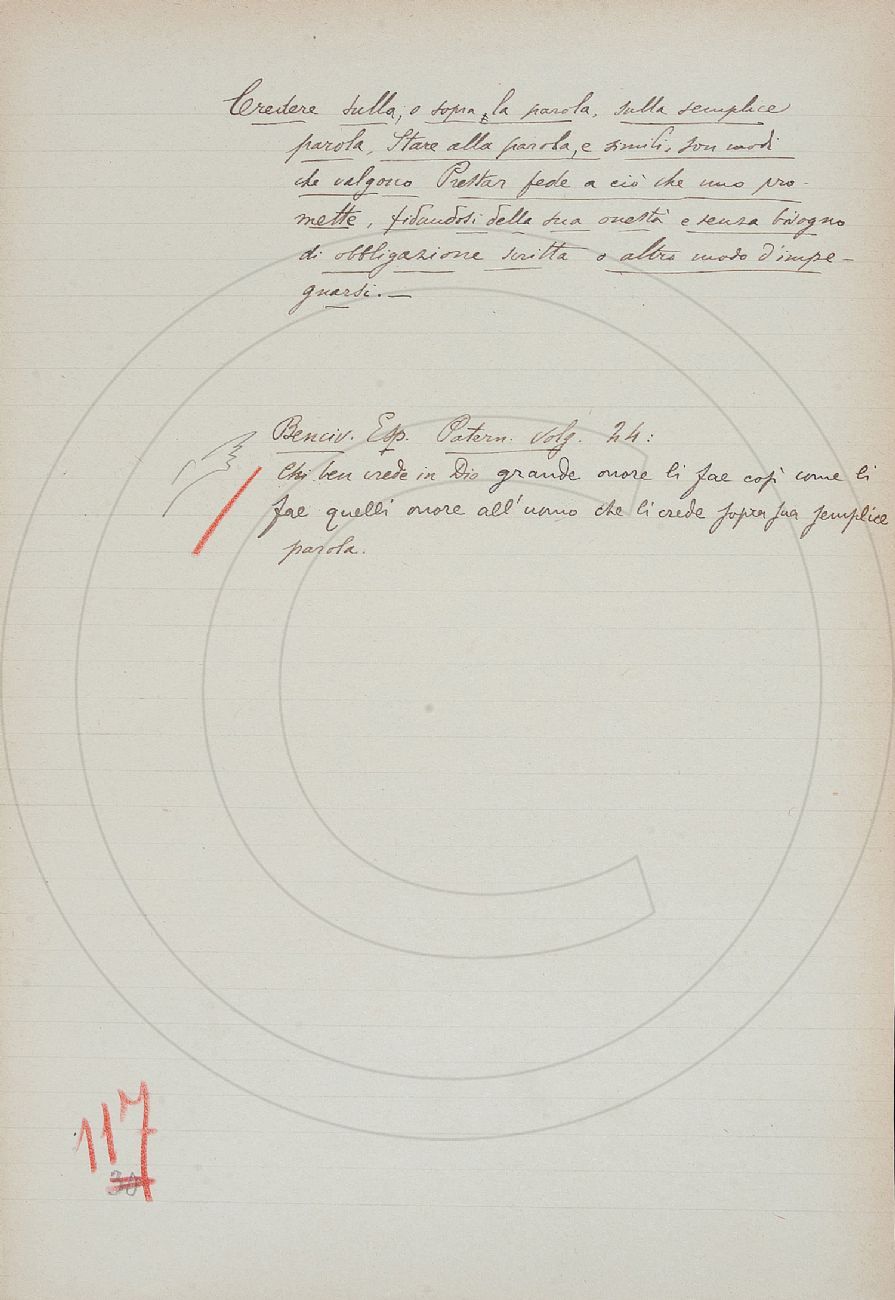 Credere sulla, o sopra la parola, sulla semplice
parola, Stare alla parola, e simili, son modi
che valgono Prestar fede a ciò che uno pro-
mette, fidandosi della sua onestà e senza bisogno
di obbligazione scritta o altro modo d'impe-
gnarsi. —
Benciv. Esp. Patern. volg. 24:
Chi ben crede in Dio grande onore li fae così come li
fae quelli onore all'uomo che li crede sopra sua semplice
parola.
117
30